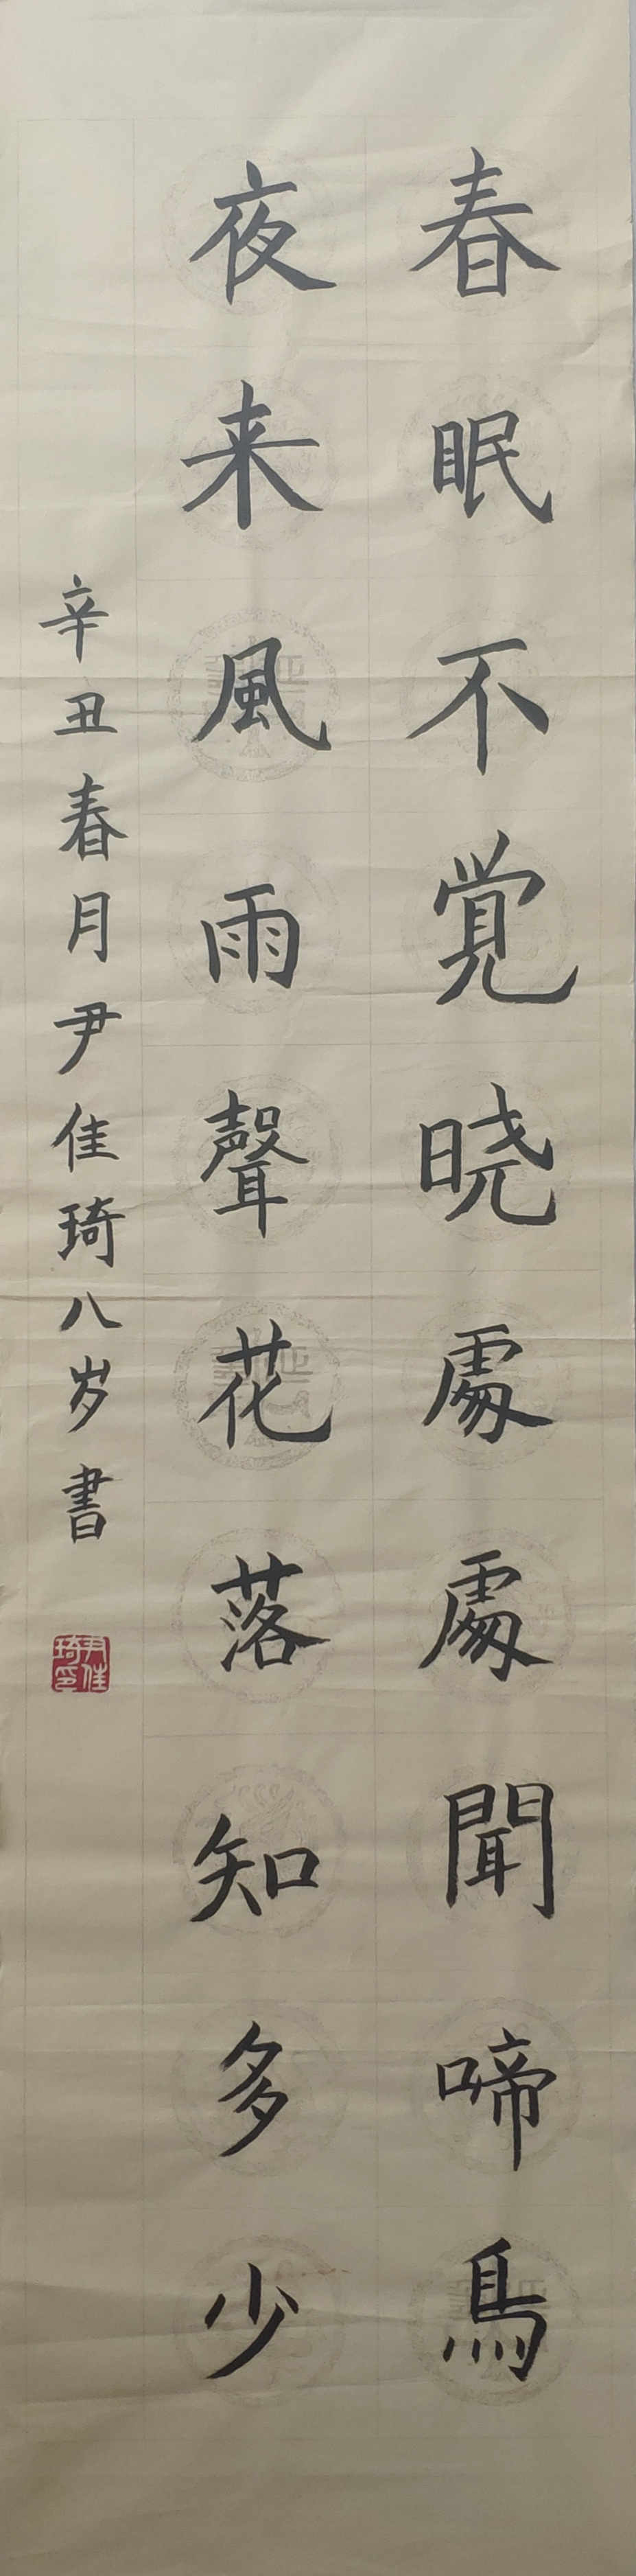 春眠不覚晓處處聞啼鳥
夜来風雨聲花落知多少
辛丑春月尹佳琦八岁書
尹佳琦印